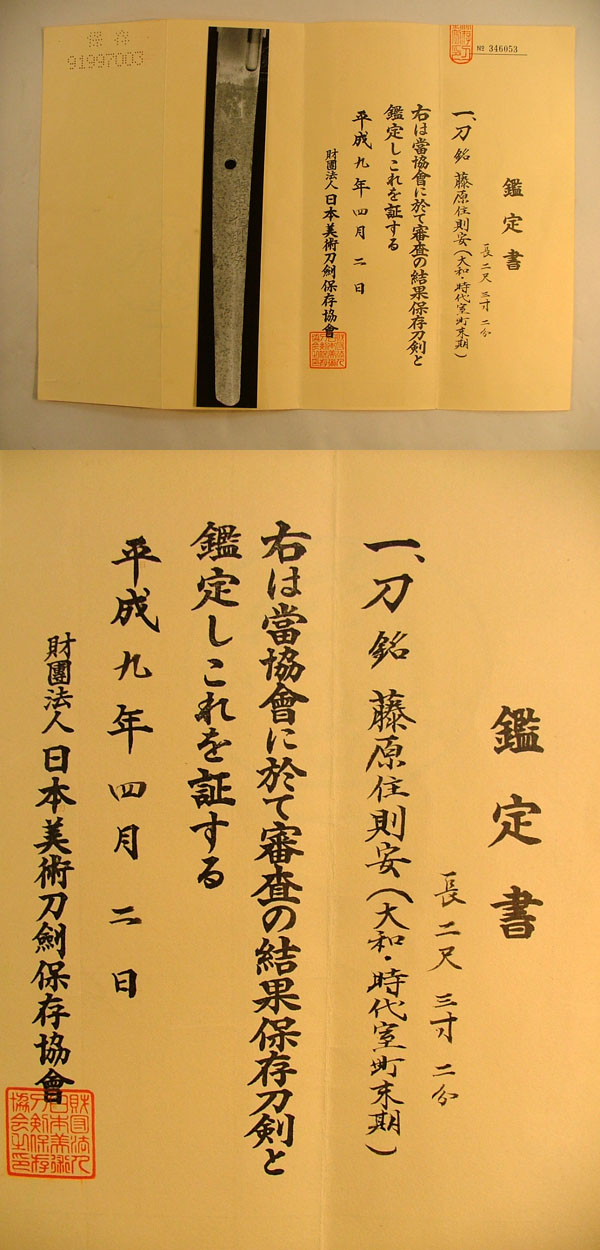 保存
91997003
№ 346053
鑑定書
長二尺三寸二分
一、刀 銘 藤原住則安(大和・時代室町末期)
右は當協會に於て審査の結果保存刀剣と
鑑定しこれを証する
平成九年四月二日
財團法人日本美術刀劍保存協會
鑑定書
長二尺三寸二分
一、刀 銘 藤原住則安(大和・時代室町末期)
右は當協會に於て審査の結果保存刀剣と
鑑定しこれを証する
平成九年四月二日
財團法人日本美術刀劍保存協會
財団法人
日本美術
刀剣保存
協会之印